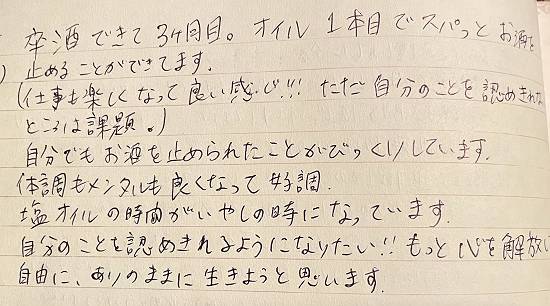 卒酒できて3ヶ月目。オイル1本目でスパっとお酒を
止めることができてます。
(仕事も楽しくなって良い感じ!!! ただ自分のことを認めきれな
ところは課題。)
自分でもお酒を止められたことがびっくりしています。
体調もメンタルも良くなって好調。
塩オイルの時間がいやしの時になっています。
自分のことを認めきれるようになりたい!! もっと心を解放し
自由に、ありのままに生きようと思います。